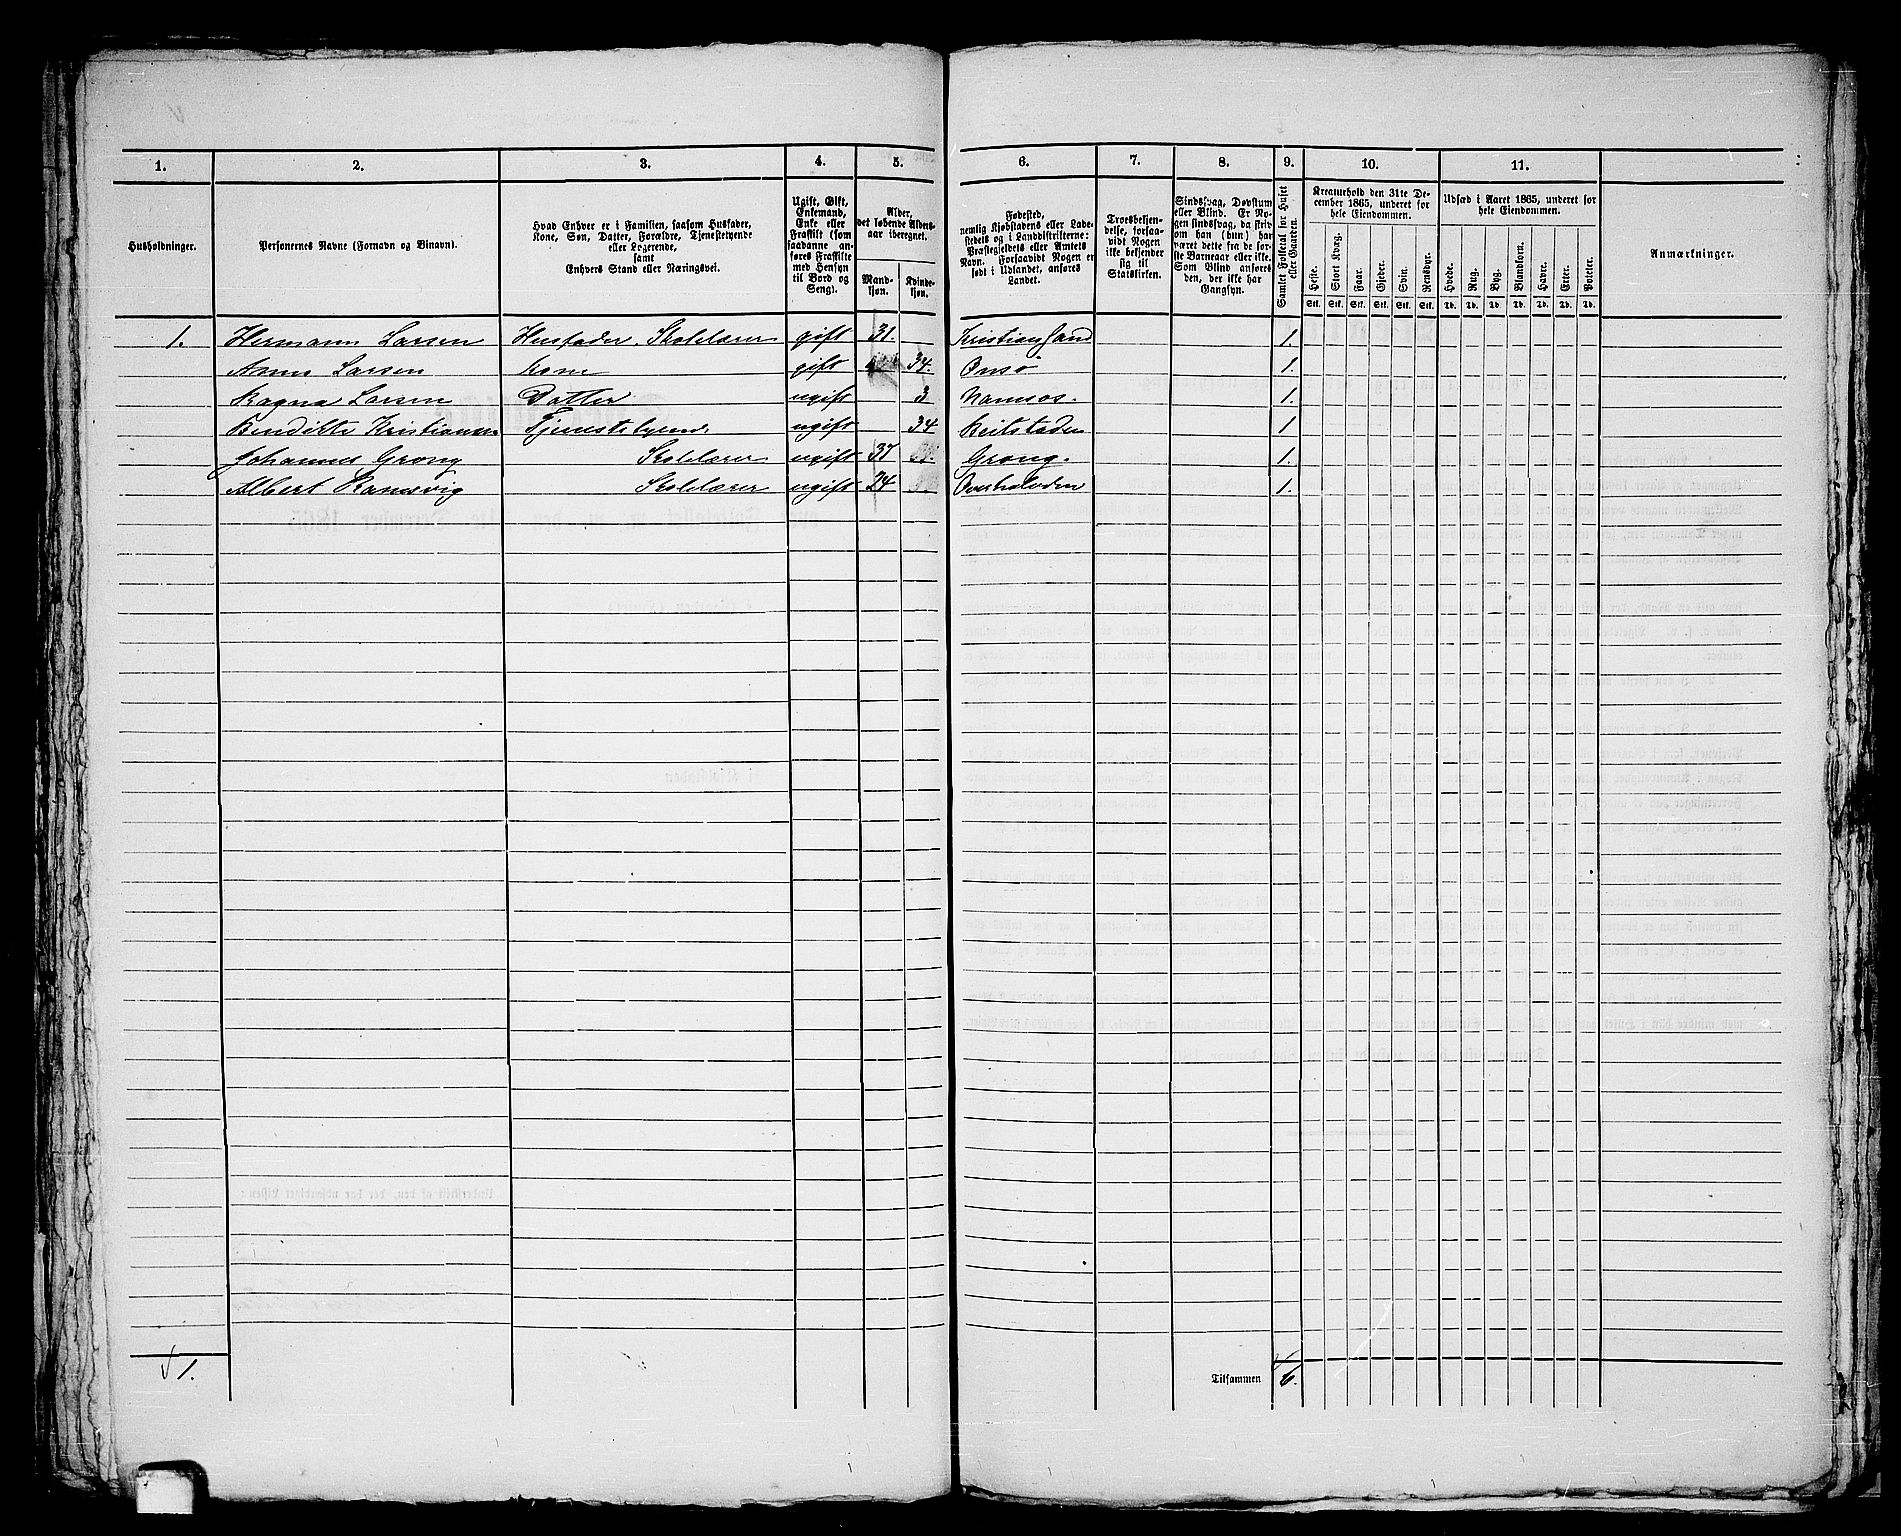 1. 2. 3. 4. 5. 6. 7. 8. 9. 10. 11.
Husholdninger.
Personernes Navne (Fornavn og Binavn).
Hvad Enhver er i Familien, saasom Husfader,
Kone, Søn, Datter, Forældre, Tjenestetyende
eller Logerende,
samt
Enhvers Stand eller Næringsvei.
Ugift, Gift,
Enkemand,
Enke eller
Fraskilt (som
saadanne an-
føres Fraskilte
med Hensyn
til Bord og
Seng).
Alder,
det løbende Alders-
aar iberegnet.
Mand-
kjøn.
Kvinde-
kjøn.
Fødested,
nemlig Kjøbstadens eller Lade-
stedets og i Landdistrikterne:
Præstegjeldets eller Amtets
Navn. Forsaavidt Nogen er
født i Udlandet, anføres
Landet.
Troesbekjen-
delse, forsaa-
vidt Nogen
ikke bekjender
sig til
Statskirken.
Sindssvag, Døvstum
eller Blind. Er No-
gen sindssvag, da skriv
om han (hun) har
været dette fra de før-
ste Barneaar eller ikke.
Som Blind anføres
den, der ikke har
Gangsyn.
Samlet Folketal for Huset
eller Gaarden.
Kreaturhold den 31te De-
cember 1865, underet for
hele Eiendommen.
Heste. Stort Kvæg. Faar. Gjeder. Svin. Rensdyr.
Stk. Stk. Stk. Stk. Stk. Stk.
Udsæd i Aaret 1865, underet for
hele Eiendommen.
Hvede. Rug. Byg. Blandkorn. Havre. Erter. Poteter.
Td. Td. Td. Td. Td. Td. Td.
Anmærkninger.
1. Hermann Larsen Husfader. Skolelærer gift 31. Kristiansand 1.
Anna Larsen kone gift 34. Onsø 1.
Ragna Larsen Datter ugift 3 Namsos. 1.
Bendikte Kristiansen Tjenestetyende ugift 34 Beitstaden 1
Johannes Grong Skolelærer ugift 37 Grong. 1.
Albert Ramsvig Skolelærer ugift 24 Overhalvden 1.
1.
Tilsammen 6.